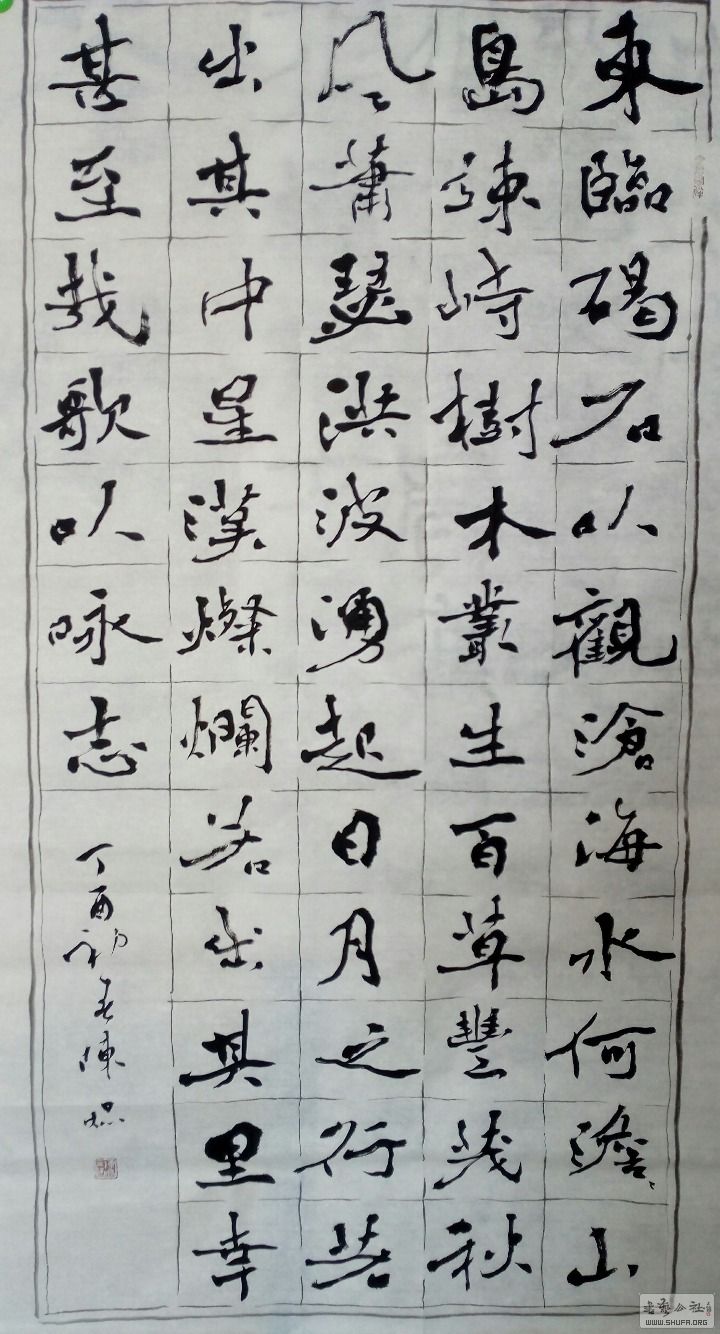 東臨碣石以觀滄海水何澹々山
島竦峙樹木叢生百草豐茂秋
風蕭瑟洪波湧起日月之行若
出其中星漢燦爛若出其里幸
甚至哉歌以咏志
丁酉初春陳
書藝公社
WWW.SHUFA.ORG